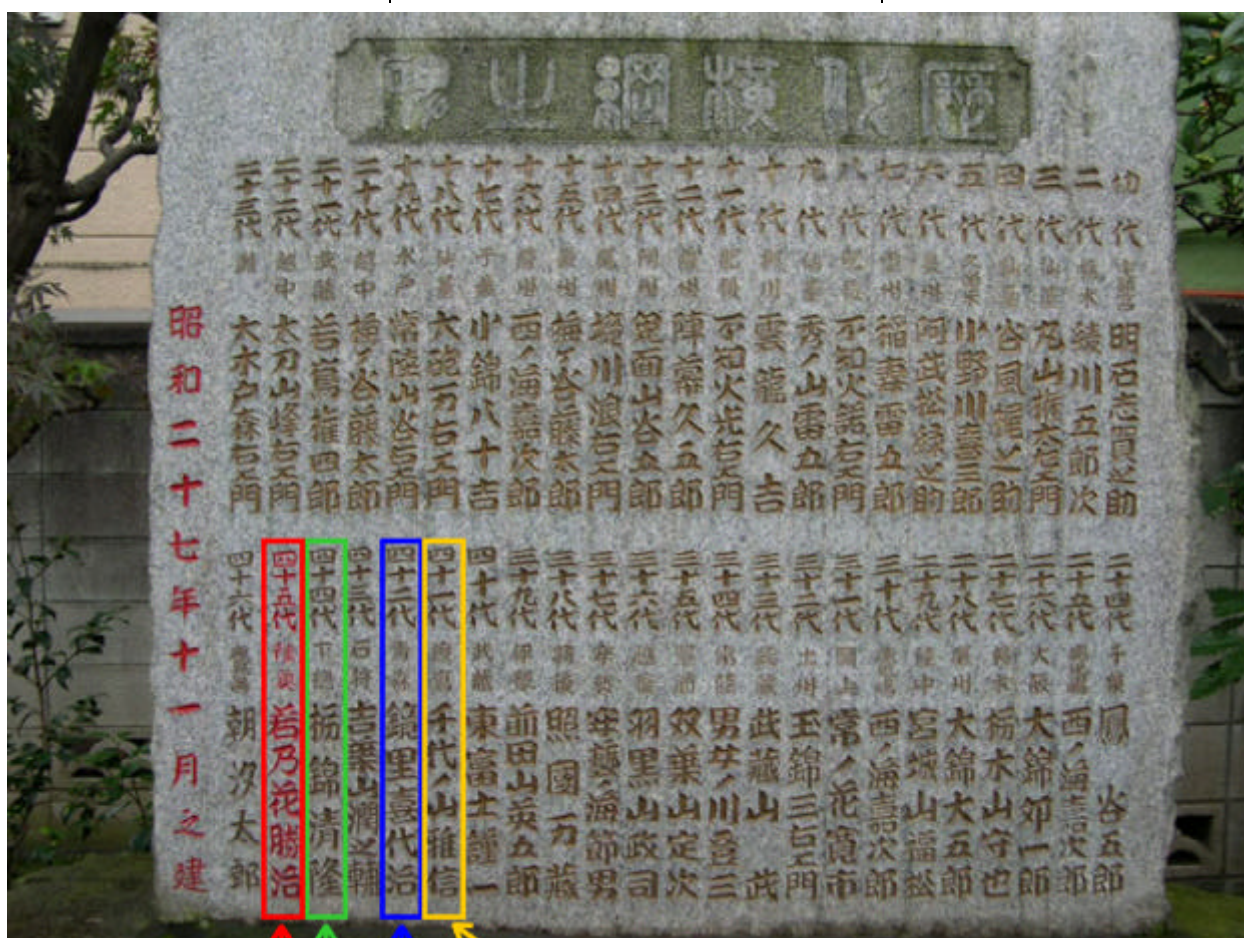 歴代横綱之碑
初代 明石志賀之助
二代 栃木 綾川五郎次
三代 仙台 丸山権太左エ門
四代 仙台 谷風梶之助
五代 久留米 小野川喜三郎
六代 阿武松緑之助
七代 稲妻雷五郎
八代 不知火諾右エ門
九代 仙台 秀ノ山雷五郎
十代 雲龍久吉
十一代 肥後 不知火光右エ門
十二代 陣幕久五郎
十三代 鬼面山谷五郎
十四代 境川浪右エ門
十五代 梅ヶ谷藤太郎
十六代 薩州 西ノ海嘉次郎
十七代 千葉 小錦八十吉
十八代 仙台 大砲万右エ門
十九代 水戸 常陸山谷右エ門
二十代 越中 梅ヶ谷藤太郎
二十一代 武蔵 若島権四郎
二十二代 越中 太刀山峰右エ門
二十三代 大木戸森右エ門
二十四代 千葉 鳳谷五郎
二十五代 西ノ海嘉次郎
二十六代 大阪 大錦卯一郎
二十七代 栃木 栃木山守也
二十八代 大錦大五郎
二十九代 宮城山福松
三十代 西ノ海嘉次郎
三十一代 常ノ花寛市
三十二代 土州 玉錦三右エ門
三十三代 武蔵山武
三十四代 男女ノ川登三
三十五代 双葉山定次
三十六代 羽黒山政司
三十七代 安藝ノ海節男
三十八代 照國万藏
三十九代 伊豫 前田山英五郎
四十代 武蔵 東富士謹一
四十一代 千代ノ山雅信
四十二代 青森 鏡里喜代治
四十三代 石狩 吉葉山潤之輔
四十四代 下総 栃錦清隆
四十五代 陸奥 若乃花勝治
四十六代 朝汐太郎
昭和二十七年十一月之建